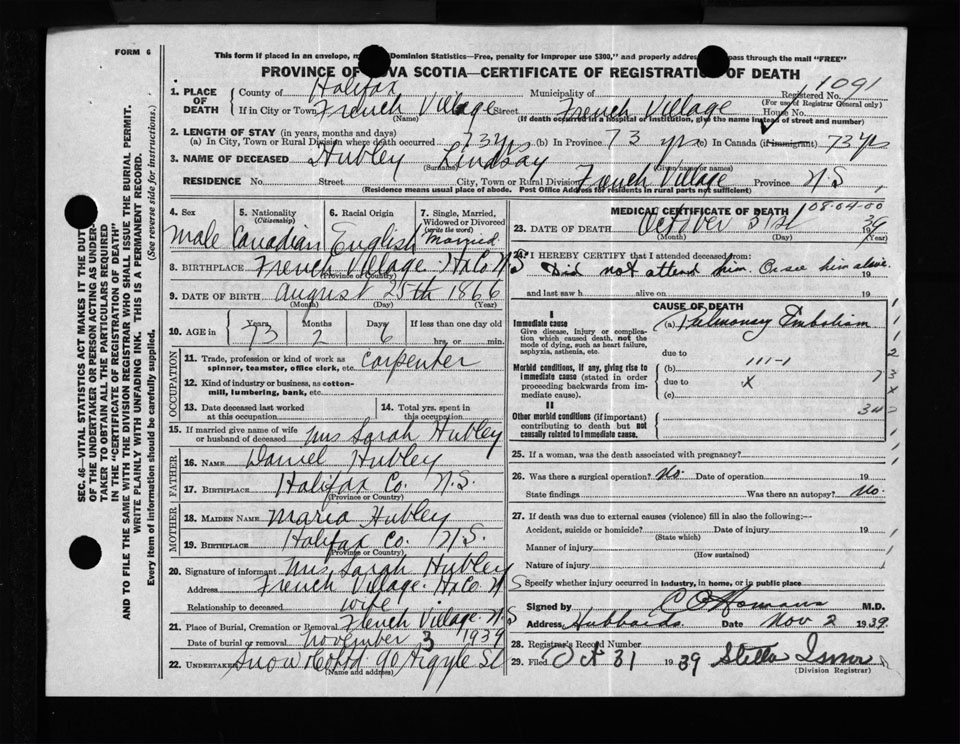 FORM 6
This form if placed in an envelope, Dominion Statistics—Free, penalty for improper use $300," and properly pass through the mail "FREE"
PROVINCE OF NOVA SCOTIA—CERTIFICATE OF REGISTRATION OF DEATH
1091
1. PLACE OF DEATH County of Halifax Municipality of Registered No. (For use of Registrar General only)
If in City or Town French Village Street French Village House No.
(Name) (If death occurred in a hospital or institution, give the name instead of street and number)
2. LENGTH OF STAY (in years, months and days)
(a) In City, Town or Rural Division where death occurred 73 yrs (b) In Province 73 yrs (c) In Canada (if immigrant) 73 yrs
3. NAME OF DECEASED Hubley Lindsay
(Surname) (Given name or names)
RESIDENCE No. Street City, Town or Rural Division French Village Province N.S
(Residence means usual place of abode. Post Office Address for residents in rural parts not sufficient)
4. Sex Male
5. Nationality (Citizenship) Canadian
6. Racial Origin English
7. Single, Married, Widowed or Divorced (write the word) Married
8. BIRTHPLACE French Village Hx Co N S
(Province or Country)
9. DATE OF BIRTH August 25th 1866
(Month) (Day) (Year)
10. AGE in Years 73 Months 2 Days 6 If less than one day old hrs. or min.
OCCUPATION
11. Trade, profession or kind of work as spinner, teamster, office clerk, etc. Carpenter
12. Kind of industry or business, as cotton-mill, lumbering, bank, etc.
13. Date deceased last worked at this occupation
14. Total yrs. spent in this occupation
15. If married give name of wife or husband of deceased Mrs Sarah Hubley
FATHER
16. NAME Daniel Hubley
17. BIRTHPLACE Halifax Co. N.S.
(Province or Country)
MOTHER
18. MAIDEN NAME Maria Hubley
19. BIRTHPLACE Halifax Co. N.S.
(Province or Country)
20. Signature of informant Mrs Sarah Hubley
Address French Village Hx Co N S
Relationship to deceased wife
21. Place of Burial, Cremation or Removal French Village N.S
Date of burial or removal November 3 1939
22. Undertaker Snow 90 Argyle St
(Name and address)
MEDICAL CERTIFICATE OF DEATH
108-04-00
23. DATE OF DEATH October 31st 1939
(Month) (Day) (Year)
24. I HEREBY CERTIFY that I attended deceased from:
Did not attend him. Or see him alive. 19
and last saw h alive on 19
CAUSE OF DEATH
I
Immediate cause (a) Pulmonary Embolism
Give disease, injury or complication which caused death, not the mode of dying, such as heart failure, asphyxia, asthenia, etc.
due to
111-1
Morbid conditions, if any, giving rise to immediate cause (stated in order proceeding backwards from immediate cause).
(b)
due to x
(c)
II
Other morbid conditions (if important) contributing to death but not causally related to immediate cause.
25. If a woman, was the death associated with pregnancy?
26. Was there a surgical operation? No. Date of operation 19
State findings Was there an autopsy? No.
27. If death was due to external causes (violence) fill in also the following:—
Accident, suicide or homicide? Date of injury 19
(State which)
Manner of injury
(How sustained)
Nature of injury
Specify whether injury occurred in industry, in home, or in public place
Signed by M.D.
Address Hubbards Date Nov 2 1939
28. Registrar's Record Number
29. Filed Oct 31 1939 Stella
(Division Registrar)
SEC. 46—VITAL STATISTICS ACT MAKES IT THE DUTY
OF THE UNDERTAKER OR PERSON ACTING AS UNDERTAKER
TO OBTAIN ALL THE PARTICULARS REQUIRED
IN THE "CERTIFICATE OF REGISTRATION OF DEATH"
AND TO FILE THE SAME WITH THE DIVISION REGISTRAR WHO SHALL ISSUE THE BURIAL PERMIT.
WRITE PLAINLY WITH UNFADING INK. THIS IS A PERMANENT RECORD.
Every item of information should be carefully supplied. (See reverse side for instructions.)